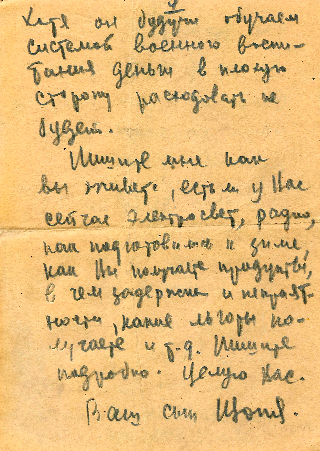 4
Хотя он будучи обучаем
системов военного воспи-
тания деньги в плохую
сторону расходовать не
будет.
Пишите мне как
вы живете, есть ли у Вас
сейчас электросвет, радио,
как подготовились к зиме,
как Вы получаете продукты,
в чем задержка и неприят-
ности, какие льготы по-
лучаете и т.д. Пишите
подробно. Целую Вас.
Ваш сын